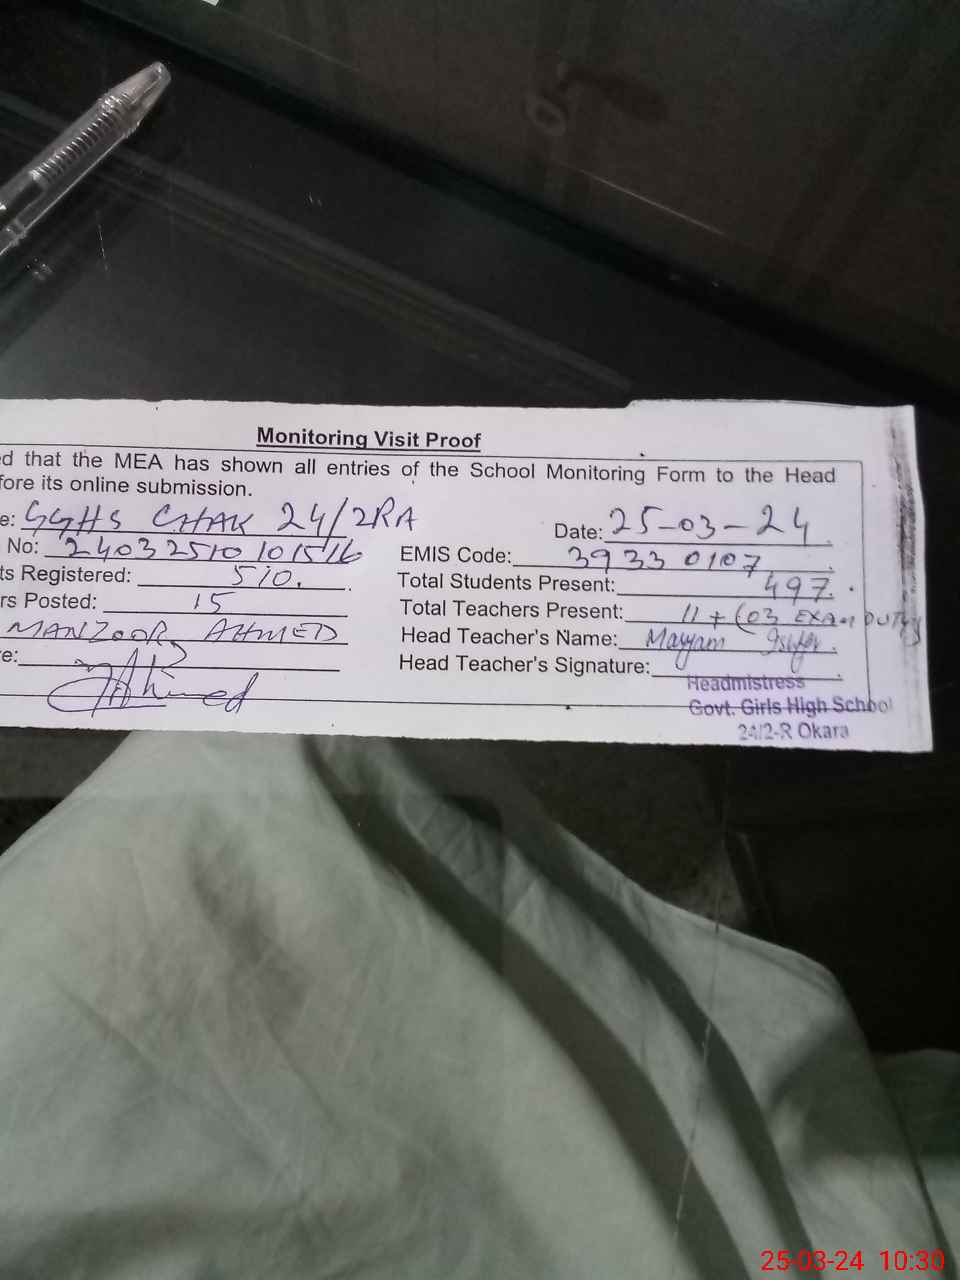 Monitoring Visit Proof
ed that the MEA has shown all entries of the School Monitoring Form to the Head
fore its online submission.
e: GGHS CHAK 24/2RA Date: 25-03-24
No: 24032510101516 EMIS Code: 39330107
ts Registered: 510. Total Students Present: 497.
rs Posted: 15 Total Teachers Present: 11 + (03 EXAM DUTY)
MANZOOR AHMED Head Teacher's Name: Maryam
e: Ahmed Head Teacher's Signature:
Headmistress
Govt. Girls High School
24/2-R Okara
25-03-24 10:30